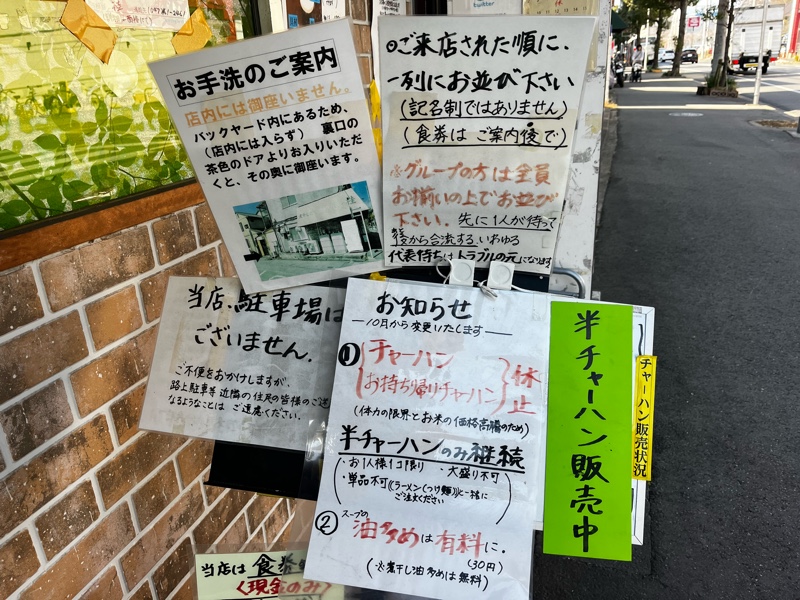 お手洗のご案内
店内には御座いません。
バックヤード内にあるため、
(店内には入らず) 裏口の
茶色のドアよりお入りいただ
くと、その奥に御座います。
twitter
ご来店された順に、
一列にお並び下さい
(記名制ではありません)
(食券は ご案内後で)
※グループの方は全員
お揃いの上でお並び
下さい。先に1人が待って
後から合流する、いわゆる
代表待ちはトラブルの元になります
当店、駐車場は
ございません。
ご不便をおかけしますが、
路上駐車等 近隣の住民の皆様のご迷
なるようなことは ご遠慮ください。
お知らせ
―10月から変更いたします―
① チャーハン
お持ち帰りチャーハン
休止
(体力の限界とお米の価格高騰のため)
半チャーハンのみ継続
・お1人様1コ限り ・大盛り不可
・単品不可(ラーメン(つけ麺)と一緒に
ご注文ください
② スープの
油多めは有料に。
(30円)
(※煮干し油多めは無料)
半チャーハン販売中
チャーハン販売状況
当店は 食券
<現金のみ>